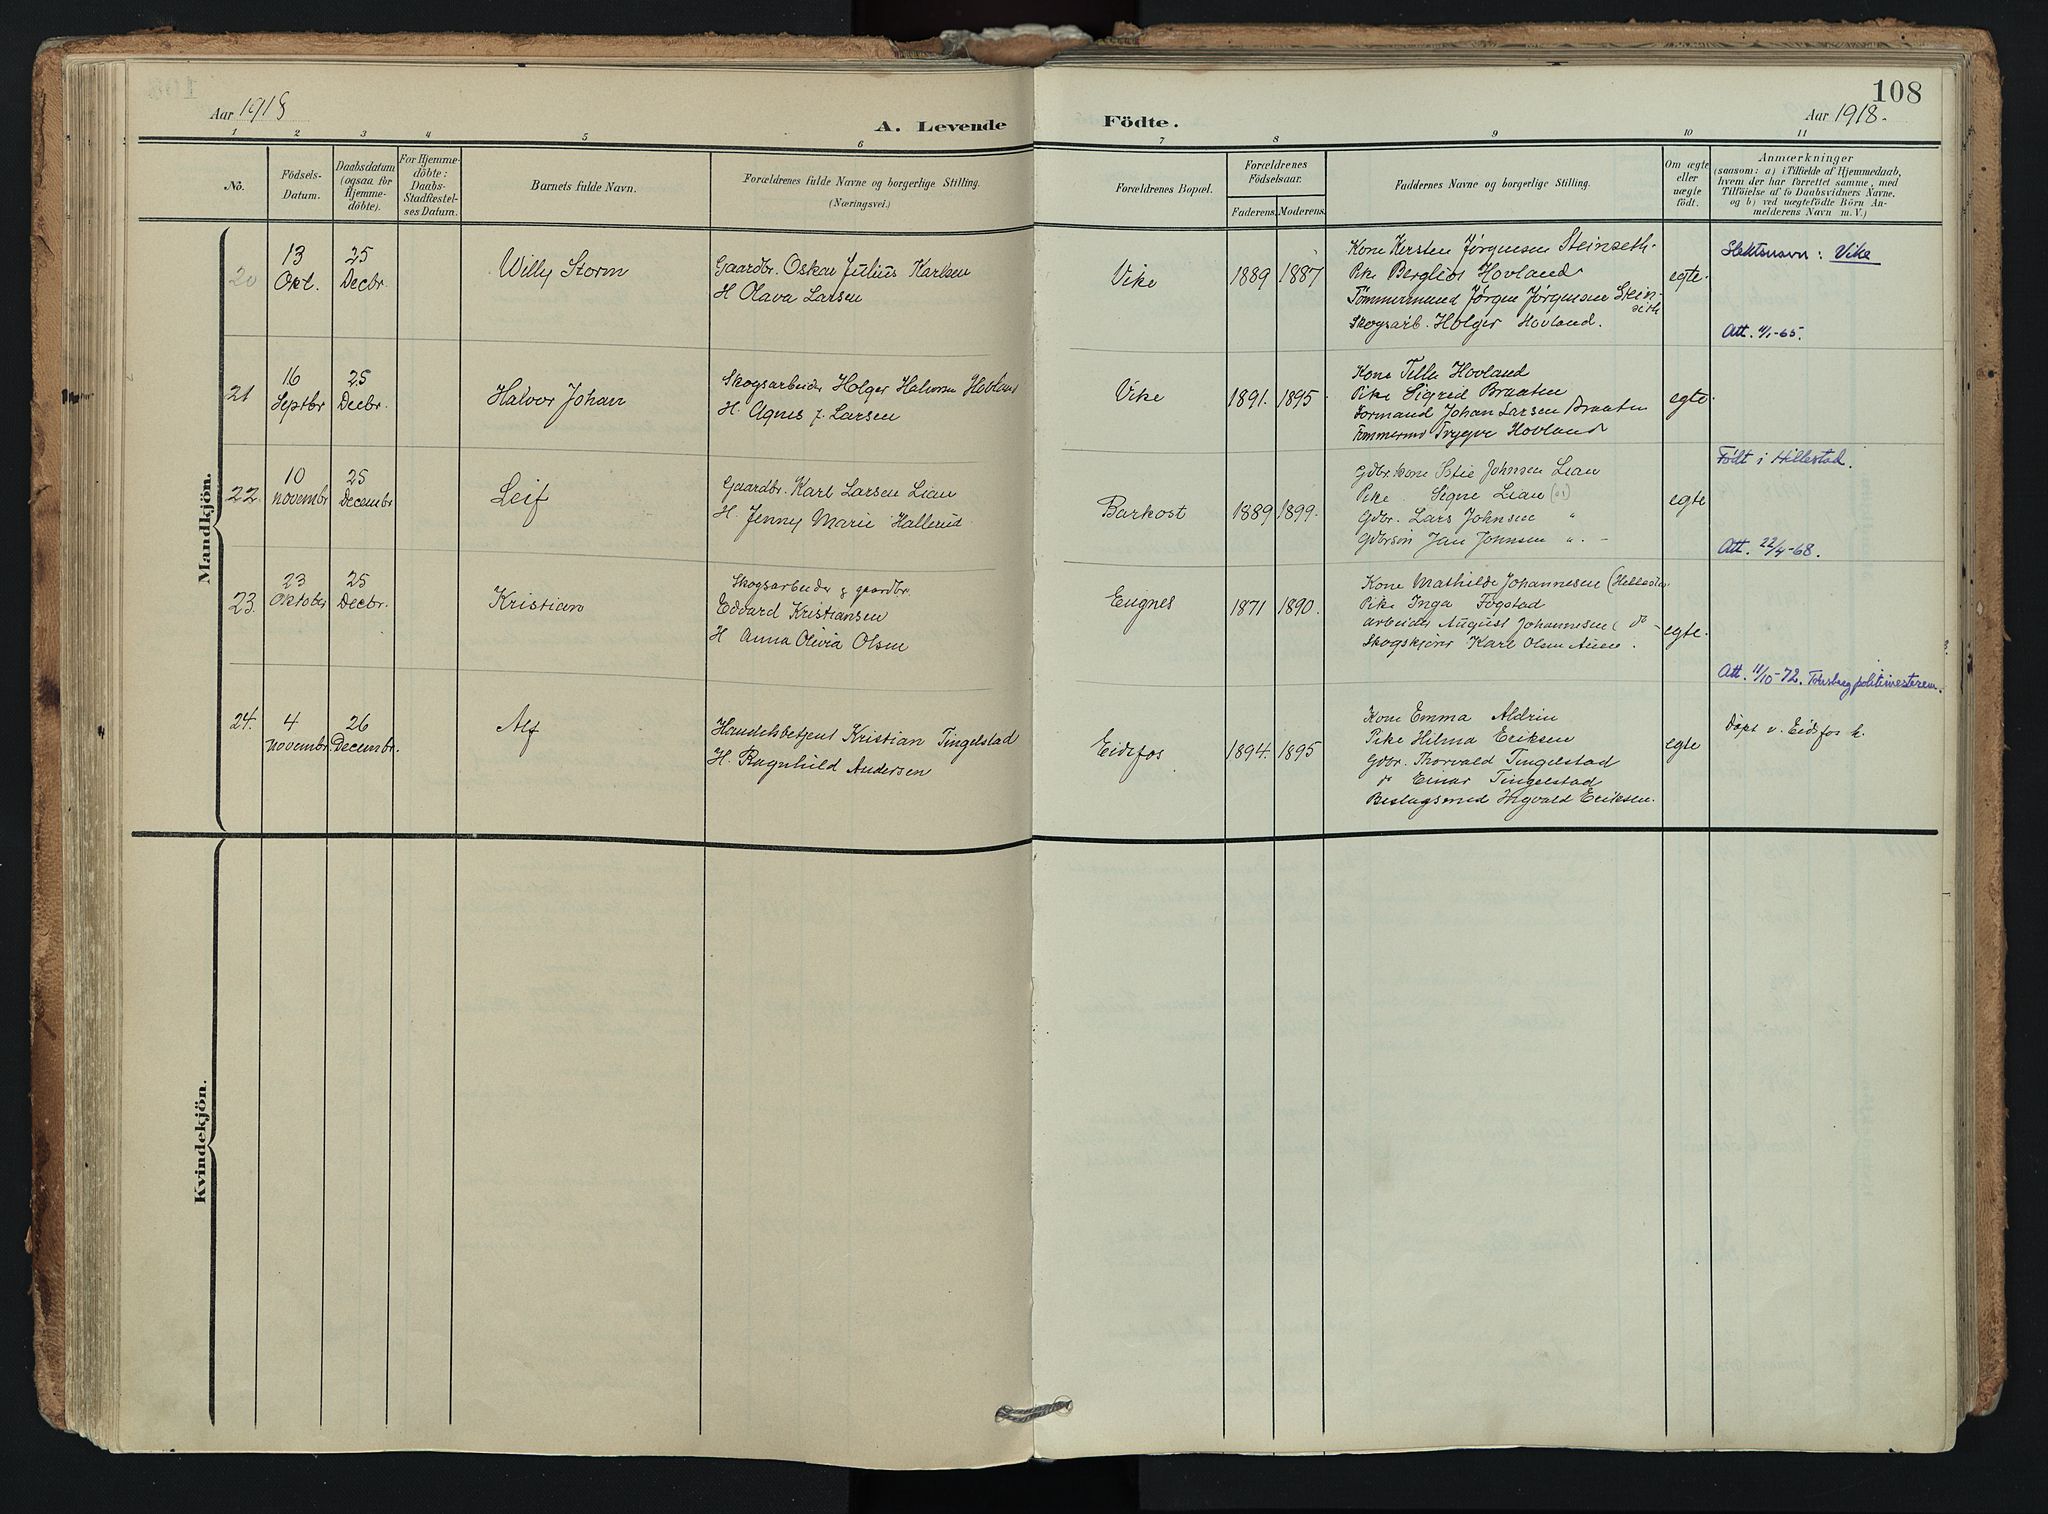 108
Aar 1918
A. Levende Födte.
Aar 1918.
1 2 3 4 5 6 7 8 9 10 11
No.
Födsels-
Datum.
Daabsdatum
(ogsaa for
Hjemme-
döbte).
For Hjemme-
döbte:
Daabs-
Stadfæstel-
ses Datum.
Barnets fulde Navn.
Forældrenes fulde Navne og borgerlige Stilling.
(Næringsvei.)
Forældrenes Bopæl.
Forældrenes
Födselsaar.
Faderens. Moderens.
Faddernes Navne og borgerlige Stilling.
Om ægte
eller
uægte
födt.
Anmærkninger
(saasom: a) i Tilfælde af Hjemmedaab,
hvem der har forrettet samme, med
Tilföielse af to Daabsvidners Navne,
og b) ved uægtefödte Börn An-
melderens Navn m. V.)
Mandkjön.
20
13
Okt.
25
Decbr.
Willy Storm
Gaardbr. Oskar Julius Karlsen
H Olava Larsen
Vike
1889 1887
Kone Kersten Jørgensen Steinseth.
Pike Bergliot Hovland
Tömmermand Jørgen Jørgensen Stein-
seth
Skogsarb. Holger Hovland.
egte.
Slektsnavn: Vike
Att. 4/1-65.
21
16
Septbr
25
Decbr.
Halvor Johan
Skogsarbeider Holger Halvorsen Hovland
H. Agnes f. Larsen
Vike
1891. 1895
Kone Tella Hovland
Pike Sigrid Braaten
Formand Johan Larsen Braaten
Tømmermd Trygve Hovland
egte.
22.
10
novembr
25
Decembr
Leif
Gaardbr. Karl Larsen Lian
H. Jenny Marie Hallerud
Barkost
1889 1899.
Gdbr. kone Sofie Johnsen Lian
Pike. Signe Lian
Gdbr. Lars Johnsen "
Gdbrsøn Jan Johnsen ". -
egte
Født i Hillestad.
Att. 22/4-68.
23.
23
Oktober
25
Decbr.
Kristian
Skogsarbeider & gaardbr.
Edvard Kristiansen
H Anna Olivia Olsen
Eugnes
1871 1890.
Kone Mathilde Johannesen
Pike Inga Fogstad
arbeider August Johannesen
Skogskjörer Karl Olsen Auen.
egte.
Att. 11/10-72. Tønsberg politimesterem.
24.
4
novembr
26
Decembr.
Alf
Handelsbetjent Kristian Tingelstad
H. Ragnhild Andersen
Eidsfos
1894. 1895
Kone Emma Aldrin
Pike Hilma Eriksen
Gdbr. Thorvald Tingelstad
do Einar Tingelstad
Beslagsmed Ingvald Eriksen.
egte
Døpt v. Eidsfos k.
Kvindekjön.